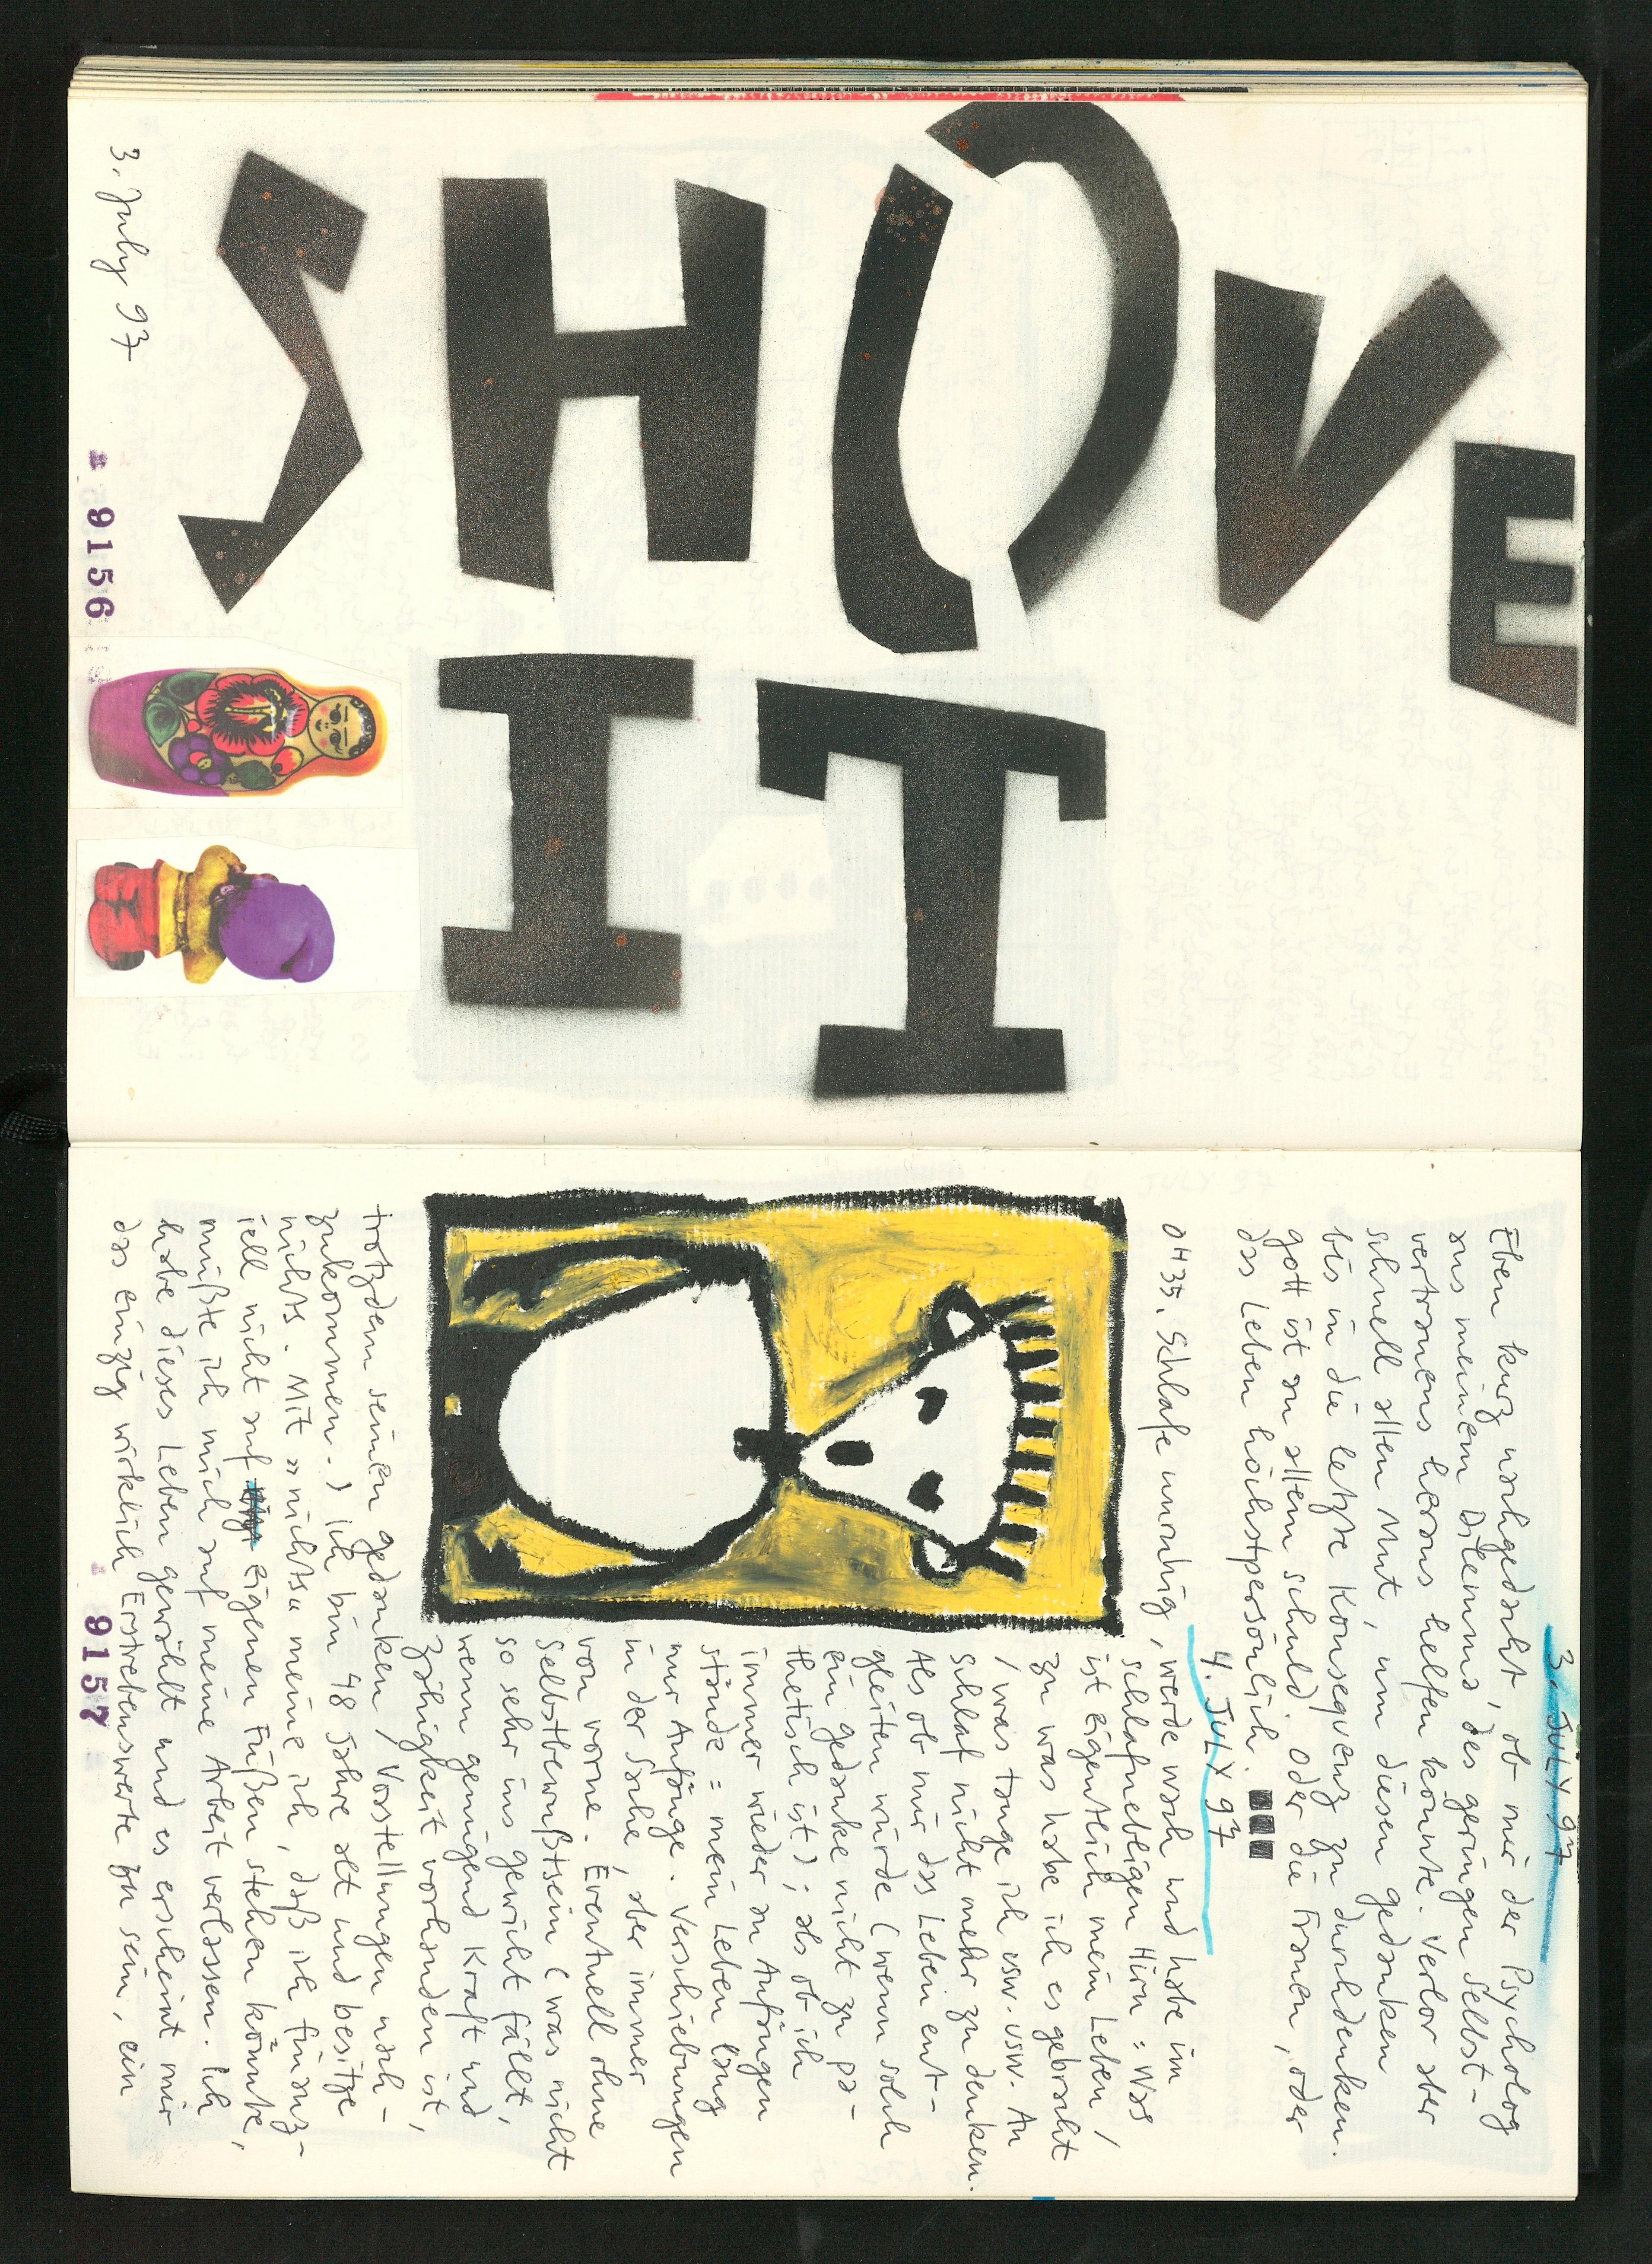 SHOVE
IT
3. July 97
9156
3. JULY 97
Eben kurz nachgedacht, ob mir der Psycholog
aus meinem Dilemma des geringen Selbst-
vertrauens heraus helfen könnte. Verlor aber
schnell allen Mut, um diesen gedanken
bis in die letzte Konsequenz zu durchdenken.
gott ist an allem schuld. Oder die Frauen, oder
das Leben höchstpersönlich.
4. JULY 97
0435. Schlafe unruhig, werde wach und habe im
schlafnebligen Hirn: Was
ist eigentlich mein Leben/
zu was habe ich es gebracht
/ was tauge ich usw. usw. An
Schlaf nicht mehr zu denken.
Als ob mir das Leben ent-
gleiten würde (wenn solch
ein gedanke nicht zu pa-
thetisch ist); als ob ich
immer wieder an Anfängen
stände = mein Leben lang
nur Anfänge. Verschiebungen
in der Sache, aber immer
von vorne. Eventuell ohne
Selbstbewußtsein (was nicht
so sehr ins gewicht fällt,
wenn genügend Kraft und
Zähigkeit vorhanden ist,
trotzdem seinen gedanken/Vorstellungen nach-
zukommen.) Ich bin 48 Jahre alt und besitze
nichts. Mit »nichts« meine ich, daß ich finanz-
iell nicht auf eigenen Füßen stehen könnte,
müßte ich mich auf meine Arbeit verlassen. Ich
habe dieses Leben gewählt und es erscheint mir
das einzig wirklich Erstrebenswerte zu sein, ein
9157